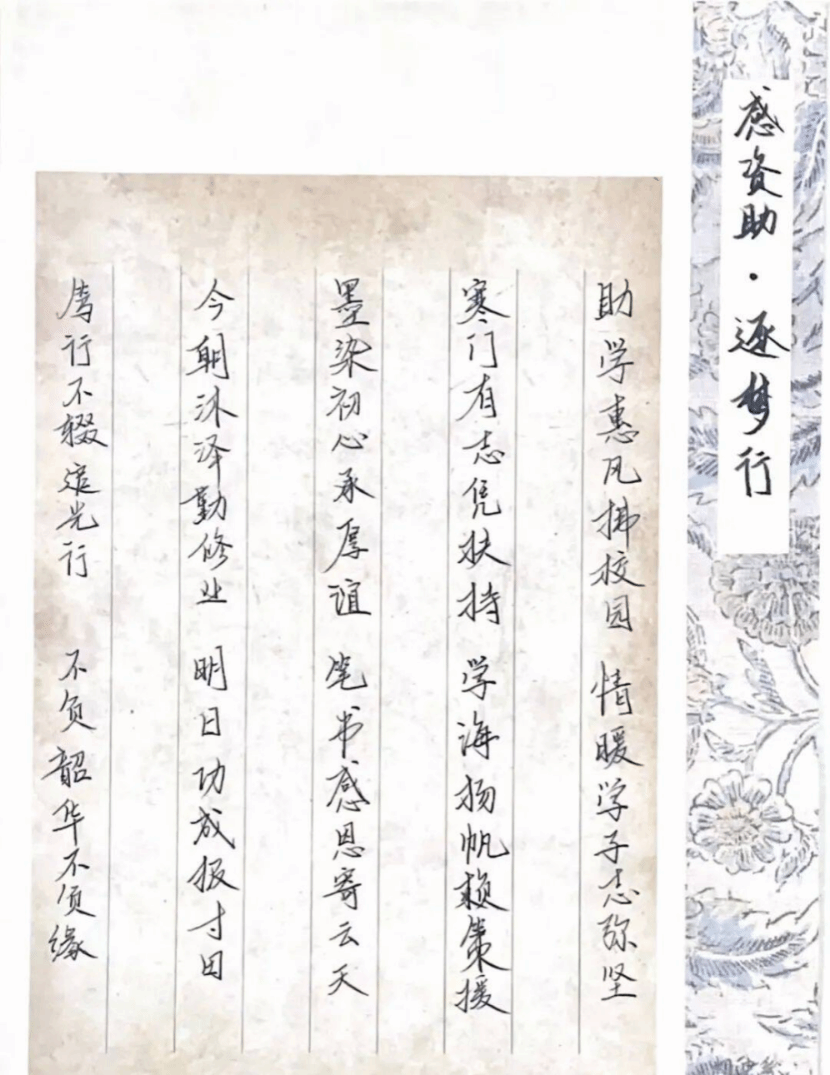 感资助·逐梦行
助学惠风拂校园 情暖学子志弥坚
寒门有志凭扶持 学海扬帆赖策援
墨染初心承厚谊 笔书感恩寄云天
今朝沐泽勤修业 明日功成报寸田
笃行不辍追光行 不负韶华不负缘